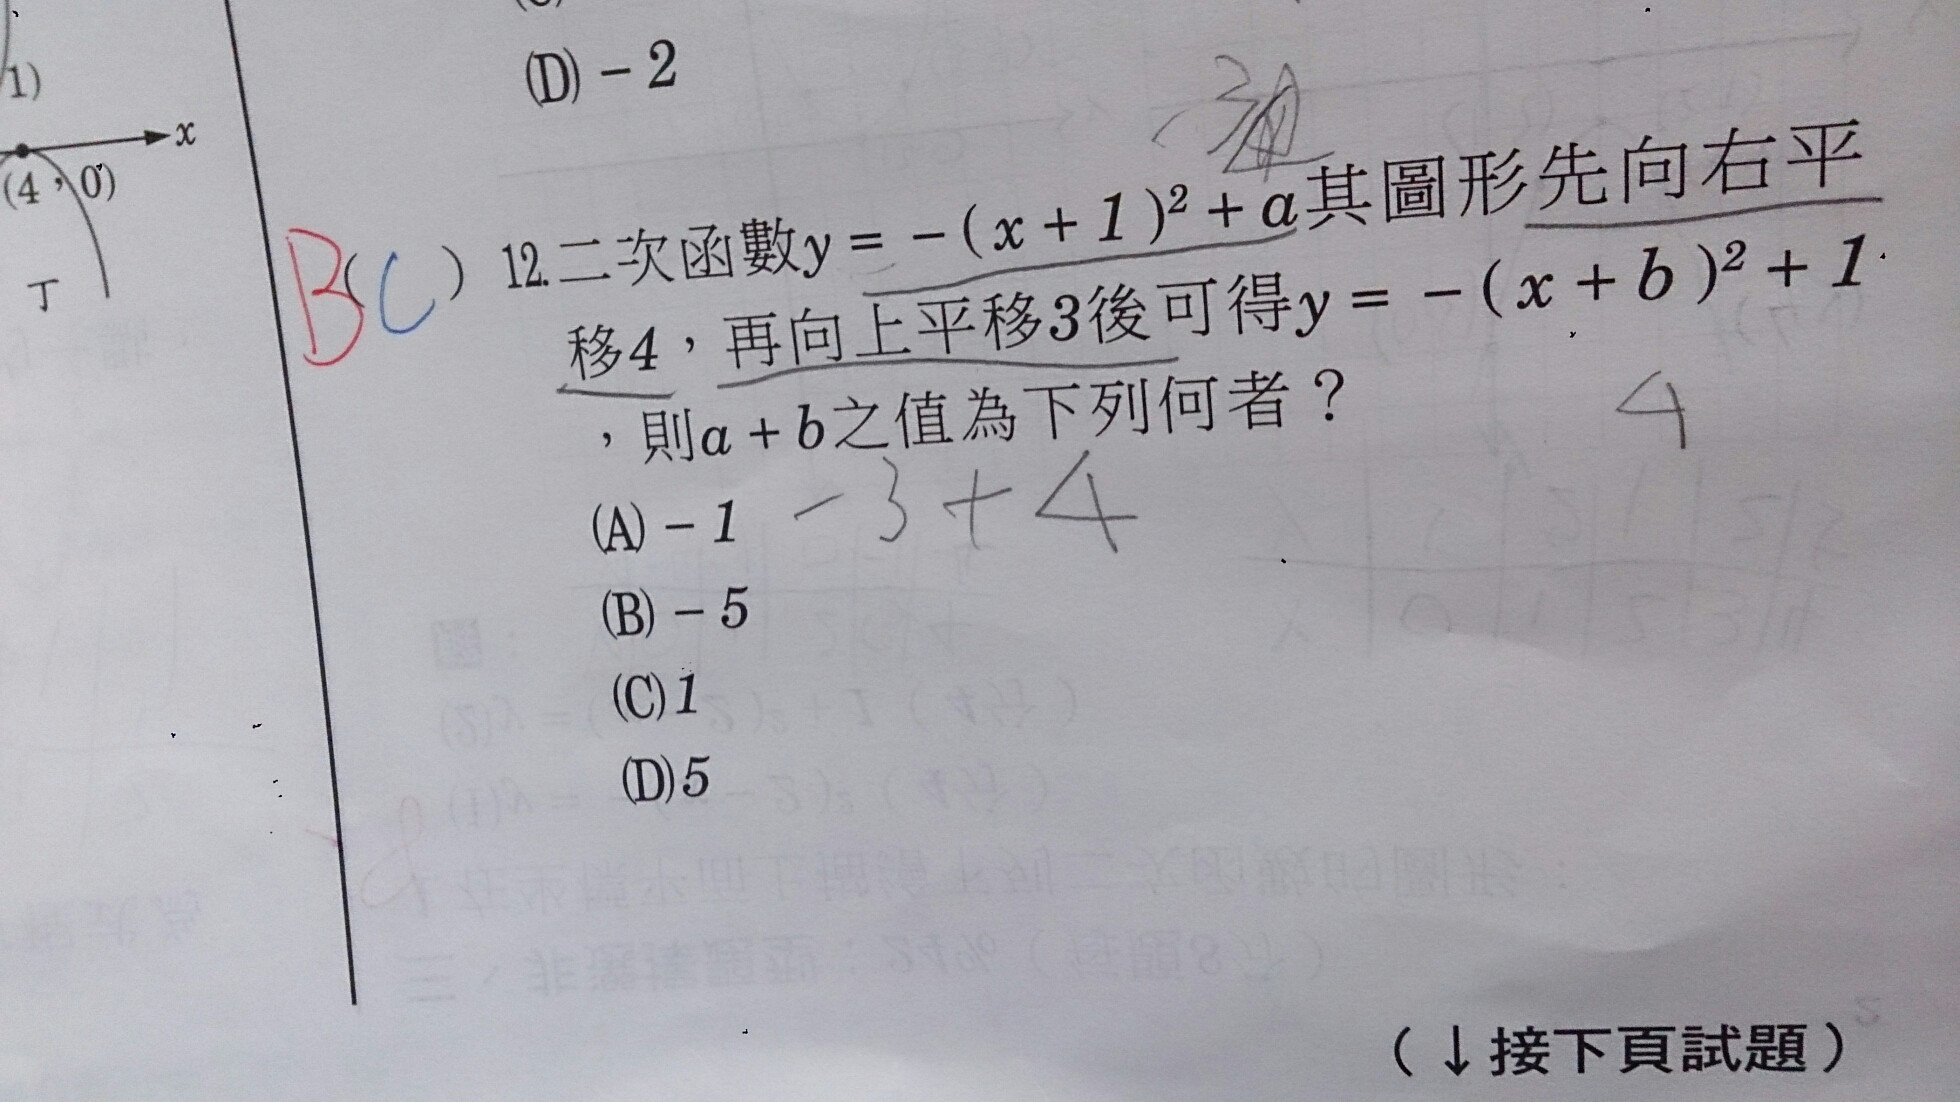 (D)－2
1)
x
(4，0)
丁
-3
B(C) 12.二次函數y＝－(x＋1)²＋a其圖形先向右平
移4，再向上平移3後可得y＝－(x＋b)²＋1
，則a＋b之值為下列何者？
4
(A)－1 -3+4
(B)－5
(C)1
(D)5
(↓接下頁試題)